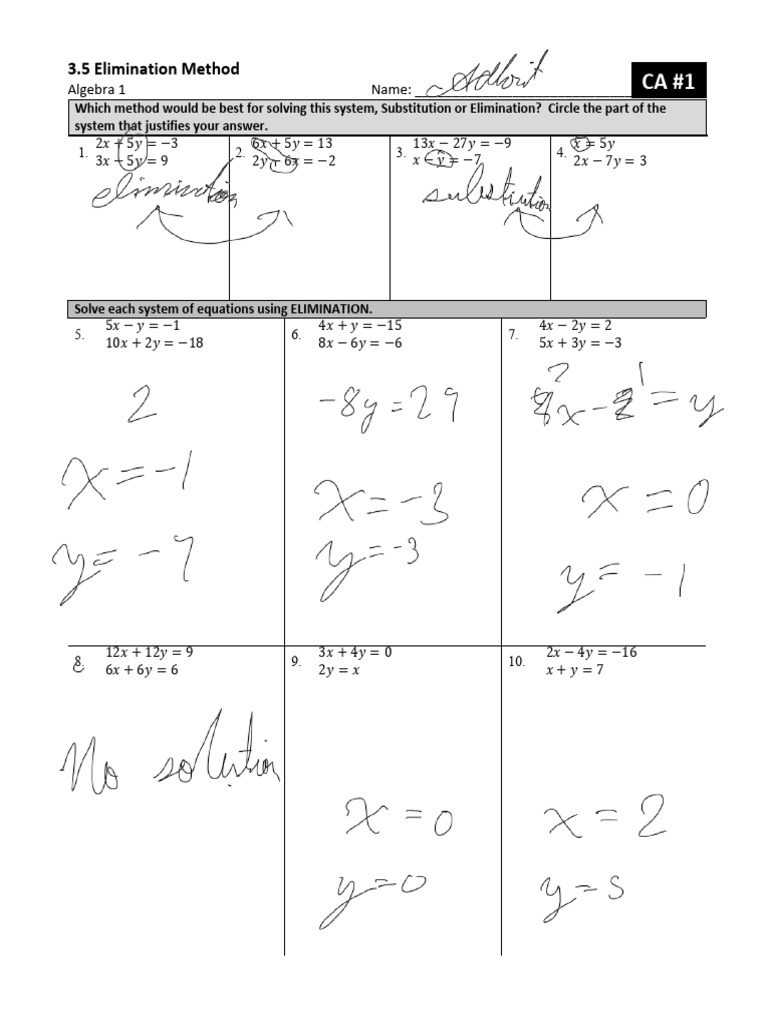 3.5 Elimination Method
Algebra 1 Name: Adhrit
CA #1
Which method would be best for solving this system, Substitution or Elimination? Circle the part of the
system that justifies your answer.
1. 2x + 5y = −3
3x − 5y = 9
2. 6x + 5y = 13
2y + 6x = −2
3. 13x − 27y = −9
x − y = −7
4. x = 5y
2x − 7y = 3
elimination
substitution
Solve each system of equations using ELIMINATION.
5. 5x − y = −1
10x + 2y = −18
2
x = -1
y = -
6. 4x + y = −15
8x − 6y = −6
-8y = 29
x = -3
y = -3
7. 4x − 2y = 2
5x + 3y = −3
2 1
x - = y
x = 0
y = -1
8. 12x + 12y = 9
6x + 6y = 6
No solution
9. 3x + 4y = 0
2y = x
x = 0
y = 0
10. 2x − 4y = −16
x + y = 7
x = 2
y = 5